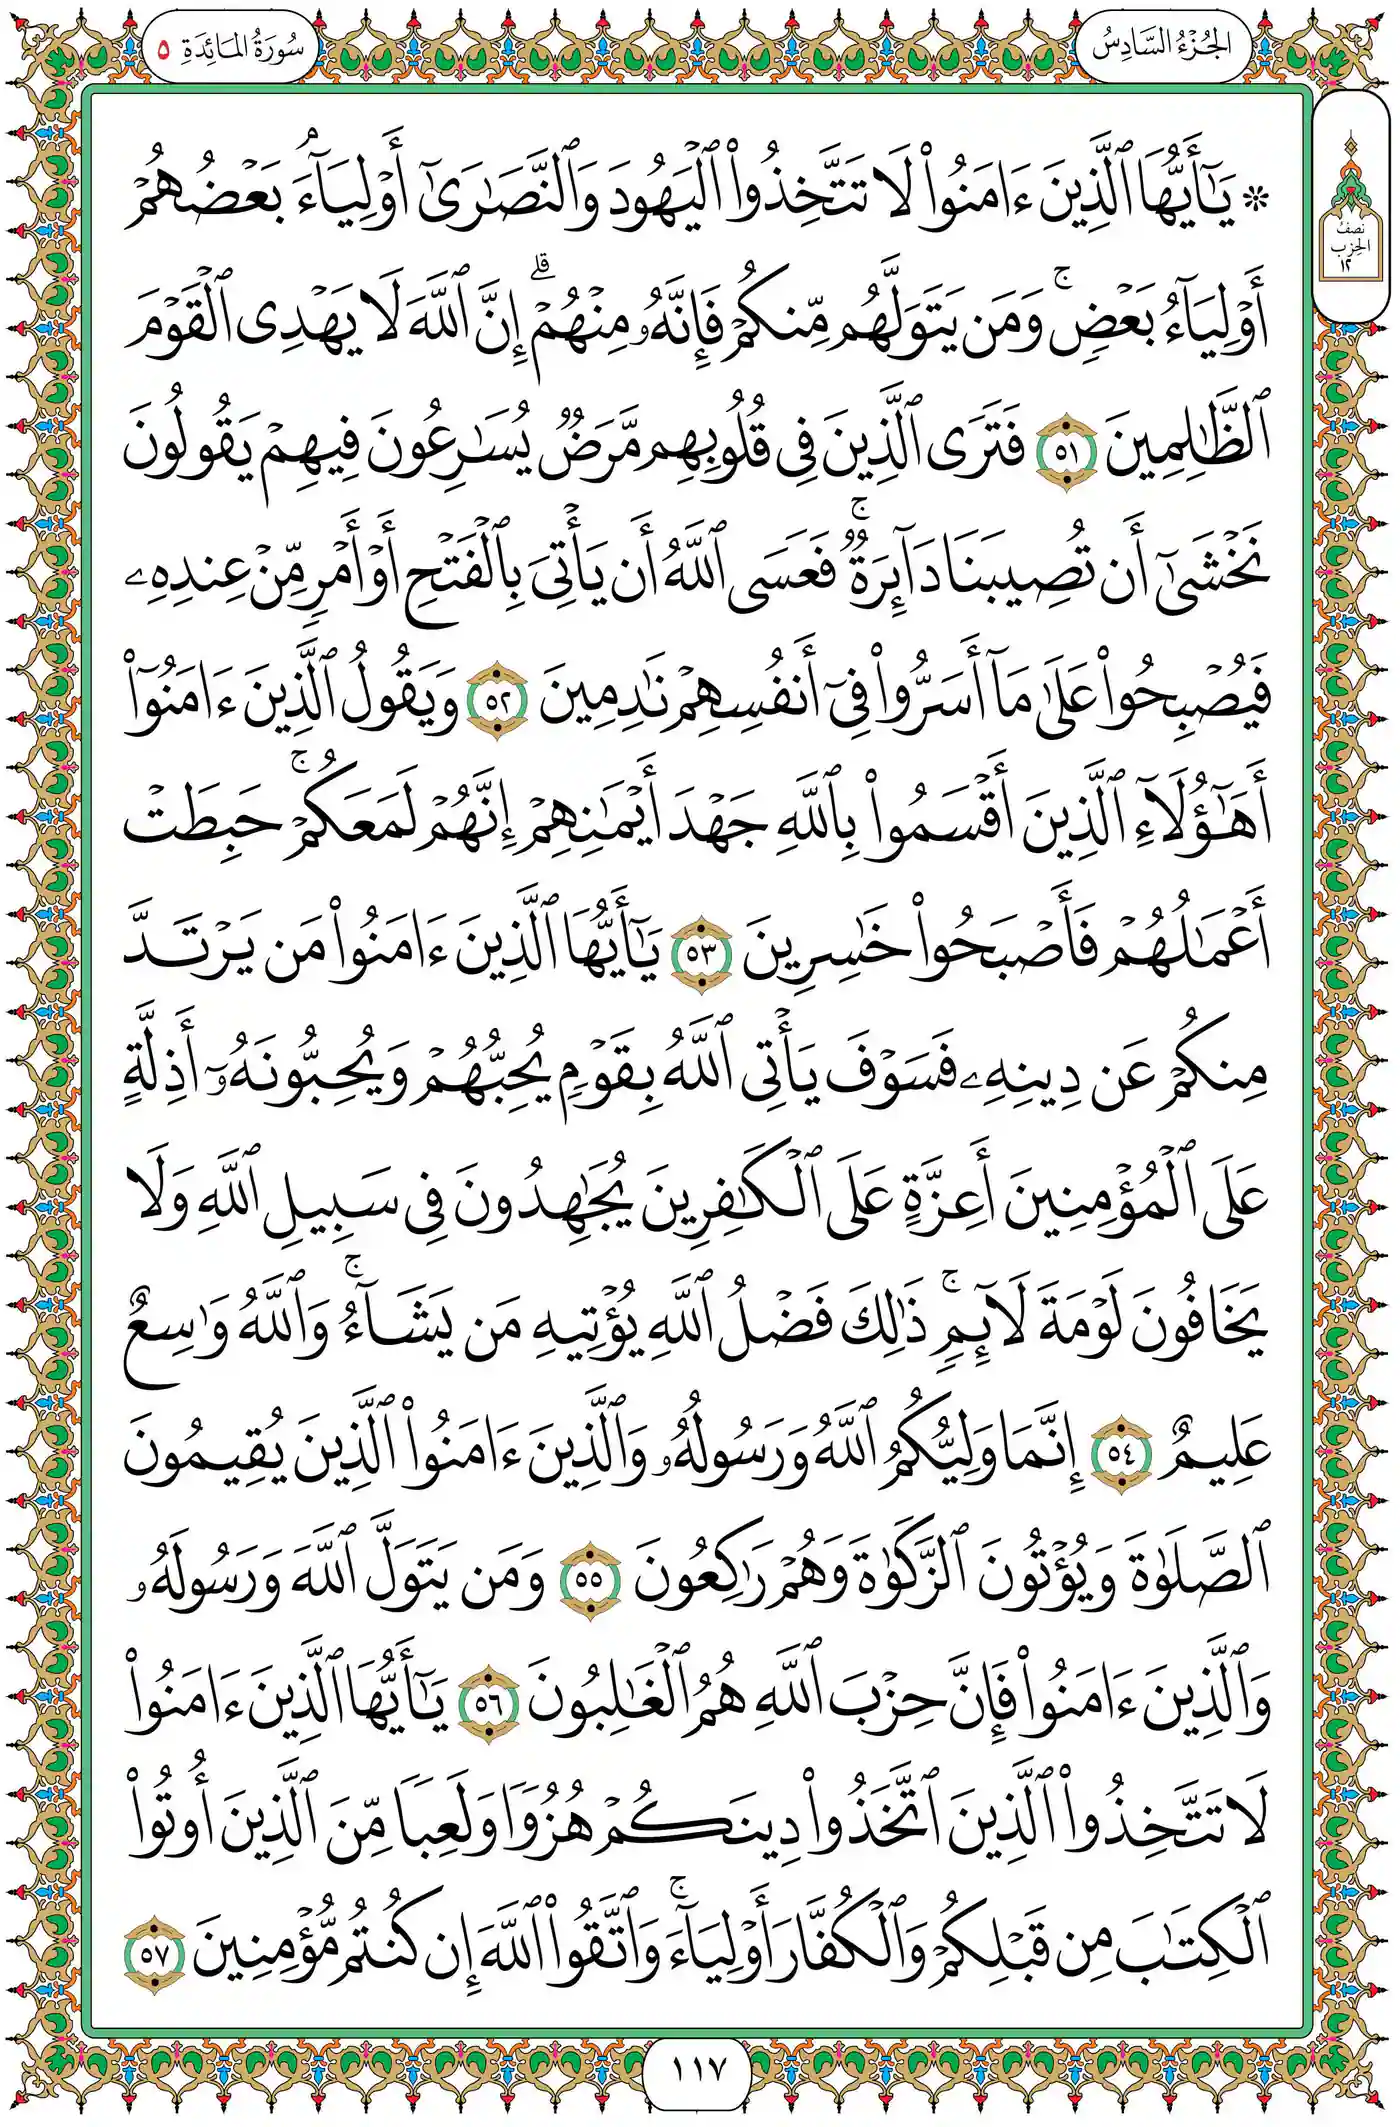 الجُزْءُ السَّادِسُ
سُورَةُ المَائِدَةِ ٥
نصف
الحزب
١٢
۞ يَٰٓأَيُّهَا ٱلَّذِينَ ءَامَنُوا۟ لَا تَتَّخِذُوا۟ ٱلْيَهُودَ وَٱلنَّصَٰرَىٰٓ أَوْلِيَآءَۘ بَعْضُهُمْ
أَوْلِيَآءُ بَعْضٍۚ وَمَن يَتَوَلَّهُم مِّنكُمْ فَإِنَّهُۥ مِنْهُمْۗ إِنَّ ٱللَّهَ لَا يَهْدِى ٱلْقَوْمَ
ٱلظَّٰلِمِينَ ٥١ فَتَرَى ٱلَّذِينَ فِى قُلُوبِهِم مَّرَضٌ يُسَٰرِعُونَ فِيهِمْ يَقُولُونَ
نَخْشَىٰٓ أَن تُصِيبَنَا دَآئِرَةٌۚ فَعَسَى ٱللَّهُ أَن يَأْتِىَ بِٱلْفَتْحِ أَوْ أَمْرٍ مِّنْ عِندِهِۦ
فَيُصْبِحُوا۟ عَلَىٰ مَآ أَسَرُّوا۟ فِىٓ أَنفُسِهِمْ نَٰدِمِينَ ٥٢ وَيَقُولُ ٱلَّذِينَ ءَامَنُوٓا۟
أَهَٰٓؤُلَآءِ ٱلَّذِينَ أَقْسَمُوا۟ بِٱللَّهِ جَهْدَ أَيْمَٰنِهِمْ إِنَّهُمْ لَمَعَكُمْۚ حَبِطَتْ
أَعْمَٰلُهُمْ فَأَصْبَحُوا۟ خَٰسِرِينَ ٥٣ يَٰٓأَيُّهَا ٱلَّذِينَ ءَامَنُوا۟ مَن يَرْتَدَّ
مِنكُمْ عَن دِينِهِۦ فَسَوْفَ يَأْتِى ٱللَّهُ بِقَوْمٍ يُحِبُّهُمْ وَيُحِبُّونَهُۥٓ أَذِلَّةٍ
عَلَى ٱلْمُؤْمِنِينَ أَعِزَّةٍ عَلَى ٱلْكَٰفِرِينَ يُجَٰهِدُونَ فِى سَبِيلِ ٱللَّهِ وَلَا
يَخَافُونَ لَوْمَةَ لَآئِمٍۚ ذَٰلِكَ فَضْلُ ٱللَّهِ يُؤْتِيهِ مَن يَشَآءُۚ وَٱللَّهُ وَٰسِعٌ
عَلِيمٌ ٥٤ إِنَّمَا وَلِيُّكُمُ ٱللَّهُ وَرَسُولُهُۥ وَٱلَّذِينَ ءَامَنُوا۟ ٱلَّذِينَ يُقِيمُونَ
ٱلصَّلَوٰةَ وَيُؤْتُونَ ٱلزَّكَوٰةَ وَهُمْ رَٰكِعُونَ ٥٥ وَمَن يَتَوَلَّ ٱللَّهَ وَرَسُولَهُۥ
وَٱلَّذِينَ ءَامَنُوا۟ فَإِنَّ حِزْبَ ٱللَّهِ هُمُ ٱلْغَٰلِبُونَ ٥٦ يَٰٓأَيُّهَا ٱلَّذِينَ ءَامَنُوا۟
لَا تَتَّخِذُوا۟ ٱلَّذِينَ ٱتَّخَذُوا۟ دِينَكُمْ هُزُوًا وَلَعِبًا مِّنَ ٱلَّذِينَ أُوتُوا۟
ٱلْكِتَٰبَ مِن قَبْلِكُمْ وَٱلْكُفَّارَ أَوْلِيَآءَۚ وَٱتَّقُوا۟ ٱللَّهَ إِن كُنتُم مُّؤْمِنِينَ ٥٧
١١٧